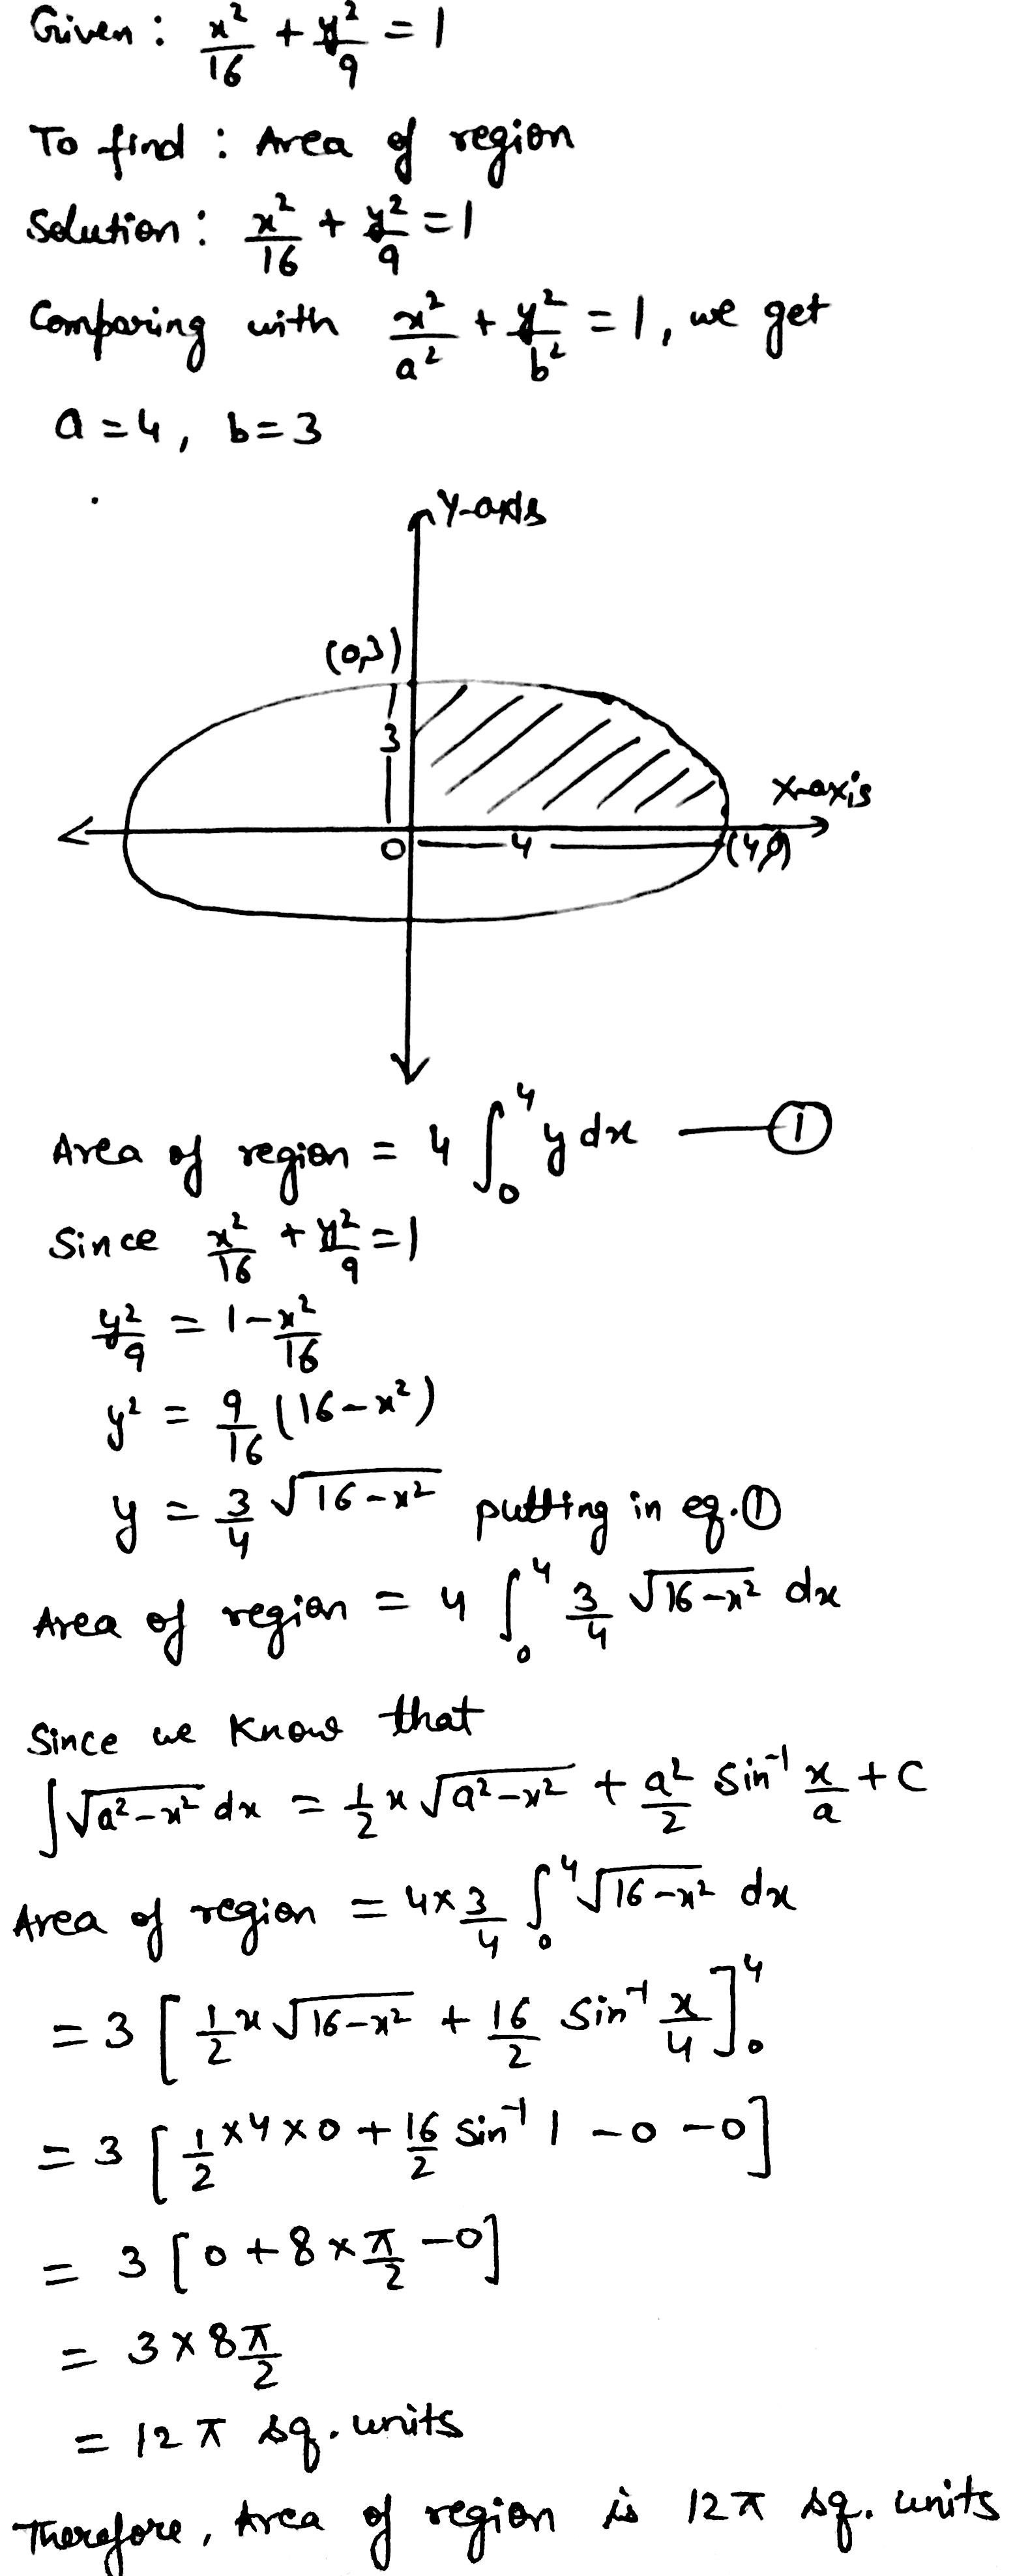 Given : x²/16 + y²/9 = 1
To find : Area of region
Solution : x²/16 + y²/9 = 1
Comparing with x²/a² + y²/b² = 1, we get
a = 4, b = 3
Y-axis
(0,3)
3
X-axis
0 4 (4,0)
Area of region = 4 ∫₀⁴ y dx — ①
Since x²/16 + y²/9 = 1
y²/9 = 1 - x²/16
y² = 9/16 (16 - x²)
y = 3/4 √(16 - x²) putting in eq. ①
Area of region = 4 ∫₀⁴ 3/4 √(16 - x²) dx
Since we know that
∫√(a² - x²) dx = 1/2 x √(a² - x²) + a²/2 sin⁻¹ x/a + C
Area of region = 4 × 3/4 ∫₀⁴ √(16 - x²) dx
= 3 [ 1/2 x √(16 - x²) + 16/2 sin⁻¹ x/4 ]₀⁴
= 3 [ 1/2 × 4 × 0 + 16/2 sin⁻¹ 1 - 0 - 0 ]
= 3 [ 0 + 8 × π/2 - 0 ]
= 3 × 8π/2
= 12 π sq. units
Therefore, Area of region is 12π sq. units